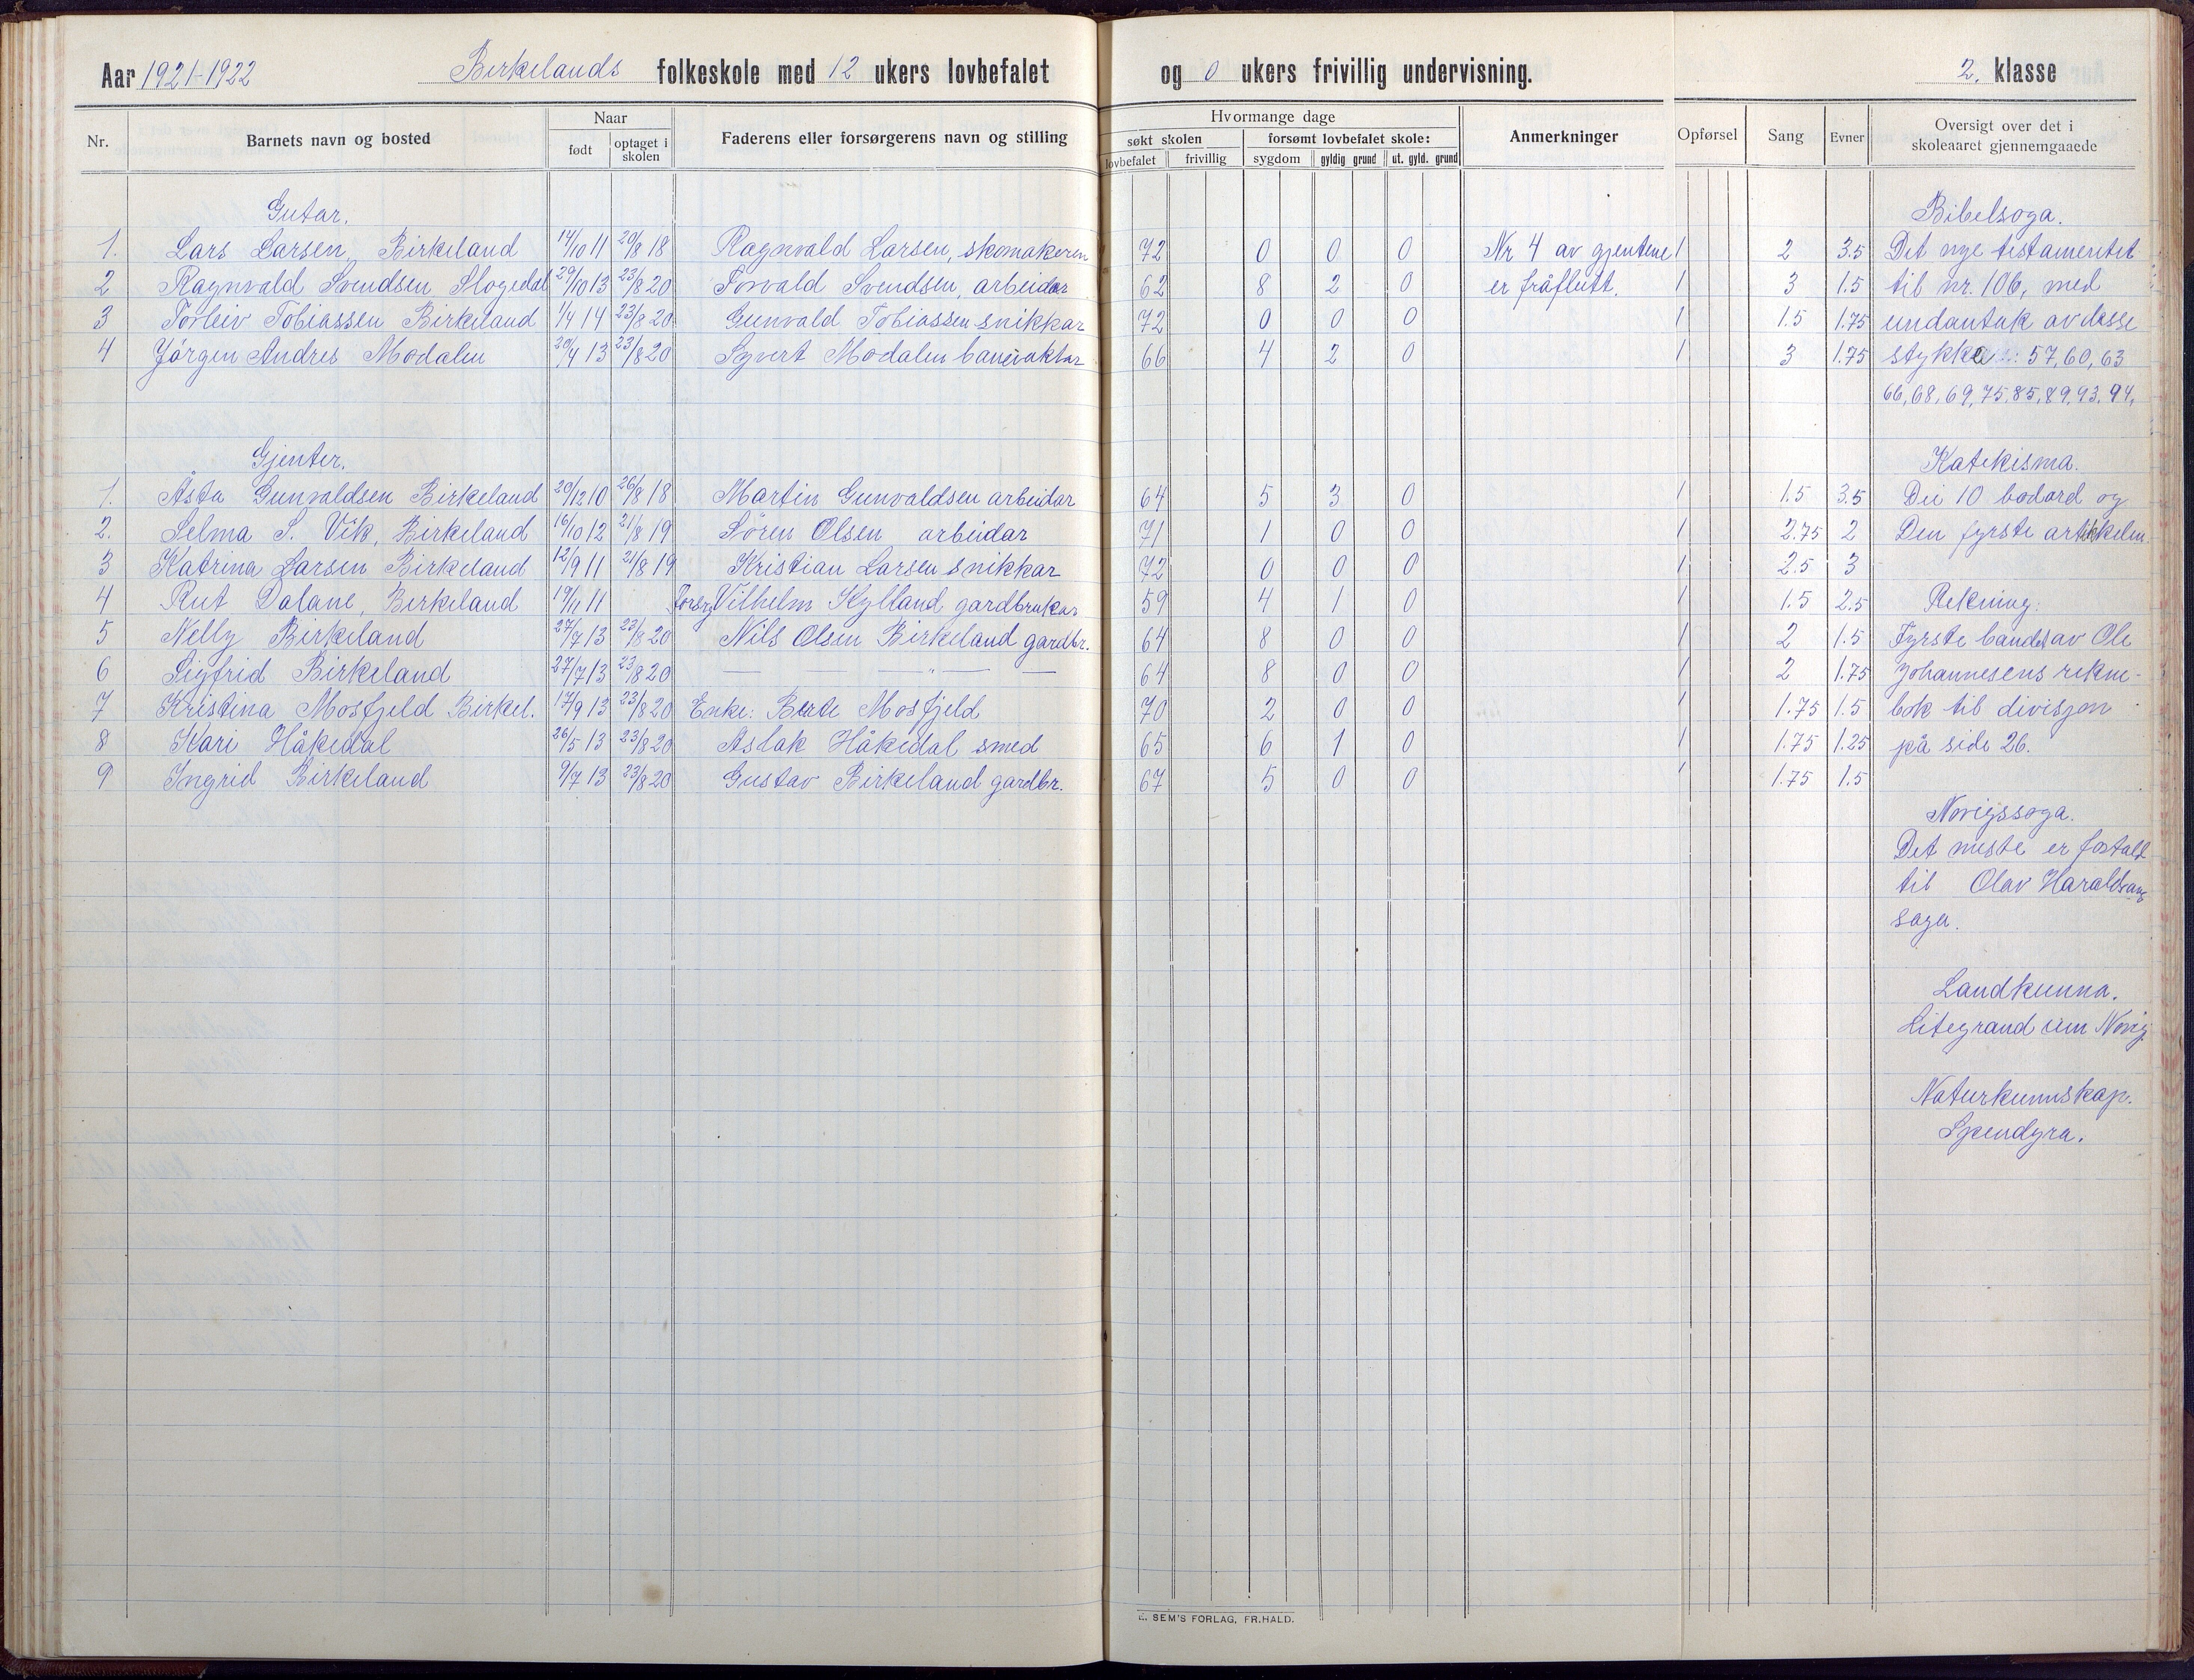 Aar 1921-1922 Birkelands folkeskole med 12 ukers lovbefalet og 0 ukers frivillig undervisning. 2. klasse
Nr. Barnets navn og bosted Naar født optaget i skolen Faderens eller forsørgerens navn og stilling Hvormange dage søkt skolen lovbefalet frivillig forsømt lovbefalet skole: sygdom gyldig grund ut. gyld. grund Anmerkninger Opførsel Sang Evner Oversigt over det i skoleaaret gjennemgaaede
Gutar. Bibelsoga.
1. Lars Larsen, Birkeland 14/10 11 20/8 18 Ragnvald Larsen, skomakeren 72 0 0 0 Nr 4 av gjentene 1 2 3.5 Det nye testamentet
2 Ragnvald Svendsen Slogedal 29/10 13 23/8 20 Torvald Svendsen, arbeidar 62 8 2 0 er fråflutt. 1 3 1.5 til nr. 106, med
3 Torleiv Tobiassen Birkeland 1/4 14 23/8 20 Gunvald Tobiassen snikkar 72 0 0 0 1 1.5 1.75 undantak av desse
4 Jörgen Andres Modalen 20/4 13 23/8 20 Syvert Modalen banevaktar 66 4 2 0 1 3 1.75 stykke: 57, 60, 63
66, 68, 69, 75, 85, 89, 93, 94,
Gjenter. Katekisma.
1. Åsta Gunvaldsen Birkeland 20/12 10 26/8 18 Martin Gunvaldsen arbeidar 64 5 3 0 1 1.5 3.5 Dei 10 bodord og
2. Selma S. Vik, Birkeland 16/10 12 21/8 19 Sören Olsen arbeidar 71 1 0 0 1 2.75 2 Den fyrste artikkelen.
3 Katrina Larsen Birkeland 12/9 11 21/8 19 Kristian Larsen snikkar 72 0 0 0 1 2.5 3
4 Rut Dalane, Birkeland 19/11 11 Forsrg Vilhelm Kylland gardbrukar 59 4 1 0 1 1.5 2.5 Rekning:
5 Nelly Birkeland 27/7 13 23/8 20 Nils Olsen Birkeland gardbr. 64 8 0 0 1 2 1.5 Fyrste bandet av Ole
6 Sigfrid Birkeland 27/7 13 23/8 20 — — " — — 64 8 0 0 1 2 1.75 Johannesens rekne-
7 Kristina Mosfjeld Birkel. 17/9 13 23/8 20 Enke: Berte Mosfjeld 70 2 0 0 1 1.75 1.5 bok til divisjon
8 Kari Håkedal 26/5 13 23/8 20 Aslak Håkedal smed 65 6 1 0 1 1.75 1.25 på side 26.
9 Ingrid Birkeland 9/7 13 23/8 20 Gustav Birkeland gardbr. 67 5 0 0 1 1.75 1.5
Norigssoga.
Det meste er fortalt
til Olav Haraldsons
saga.
Landkunna.
Litegrand um Norig
Naturkunnskap.
Spendyra.
SEM'S FORLAG, FR.HALD.